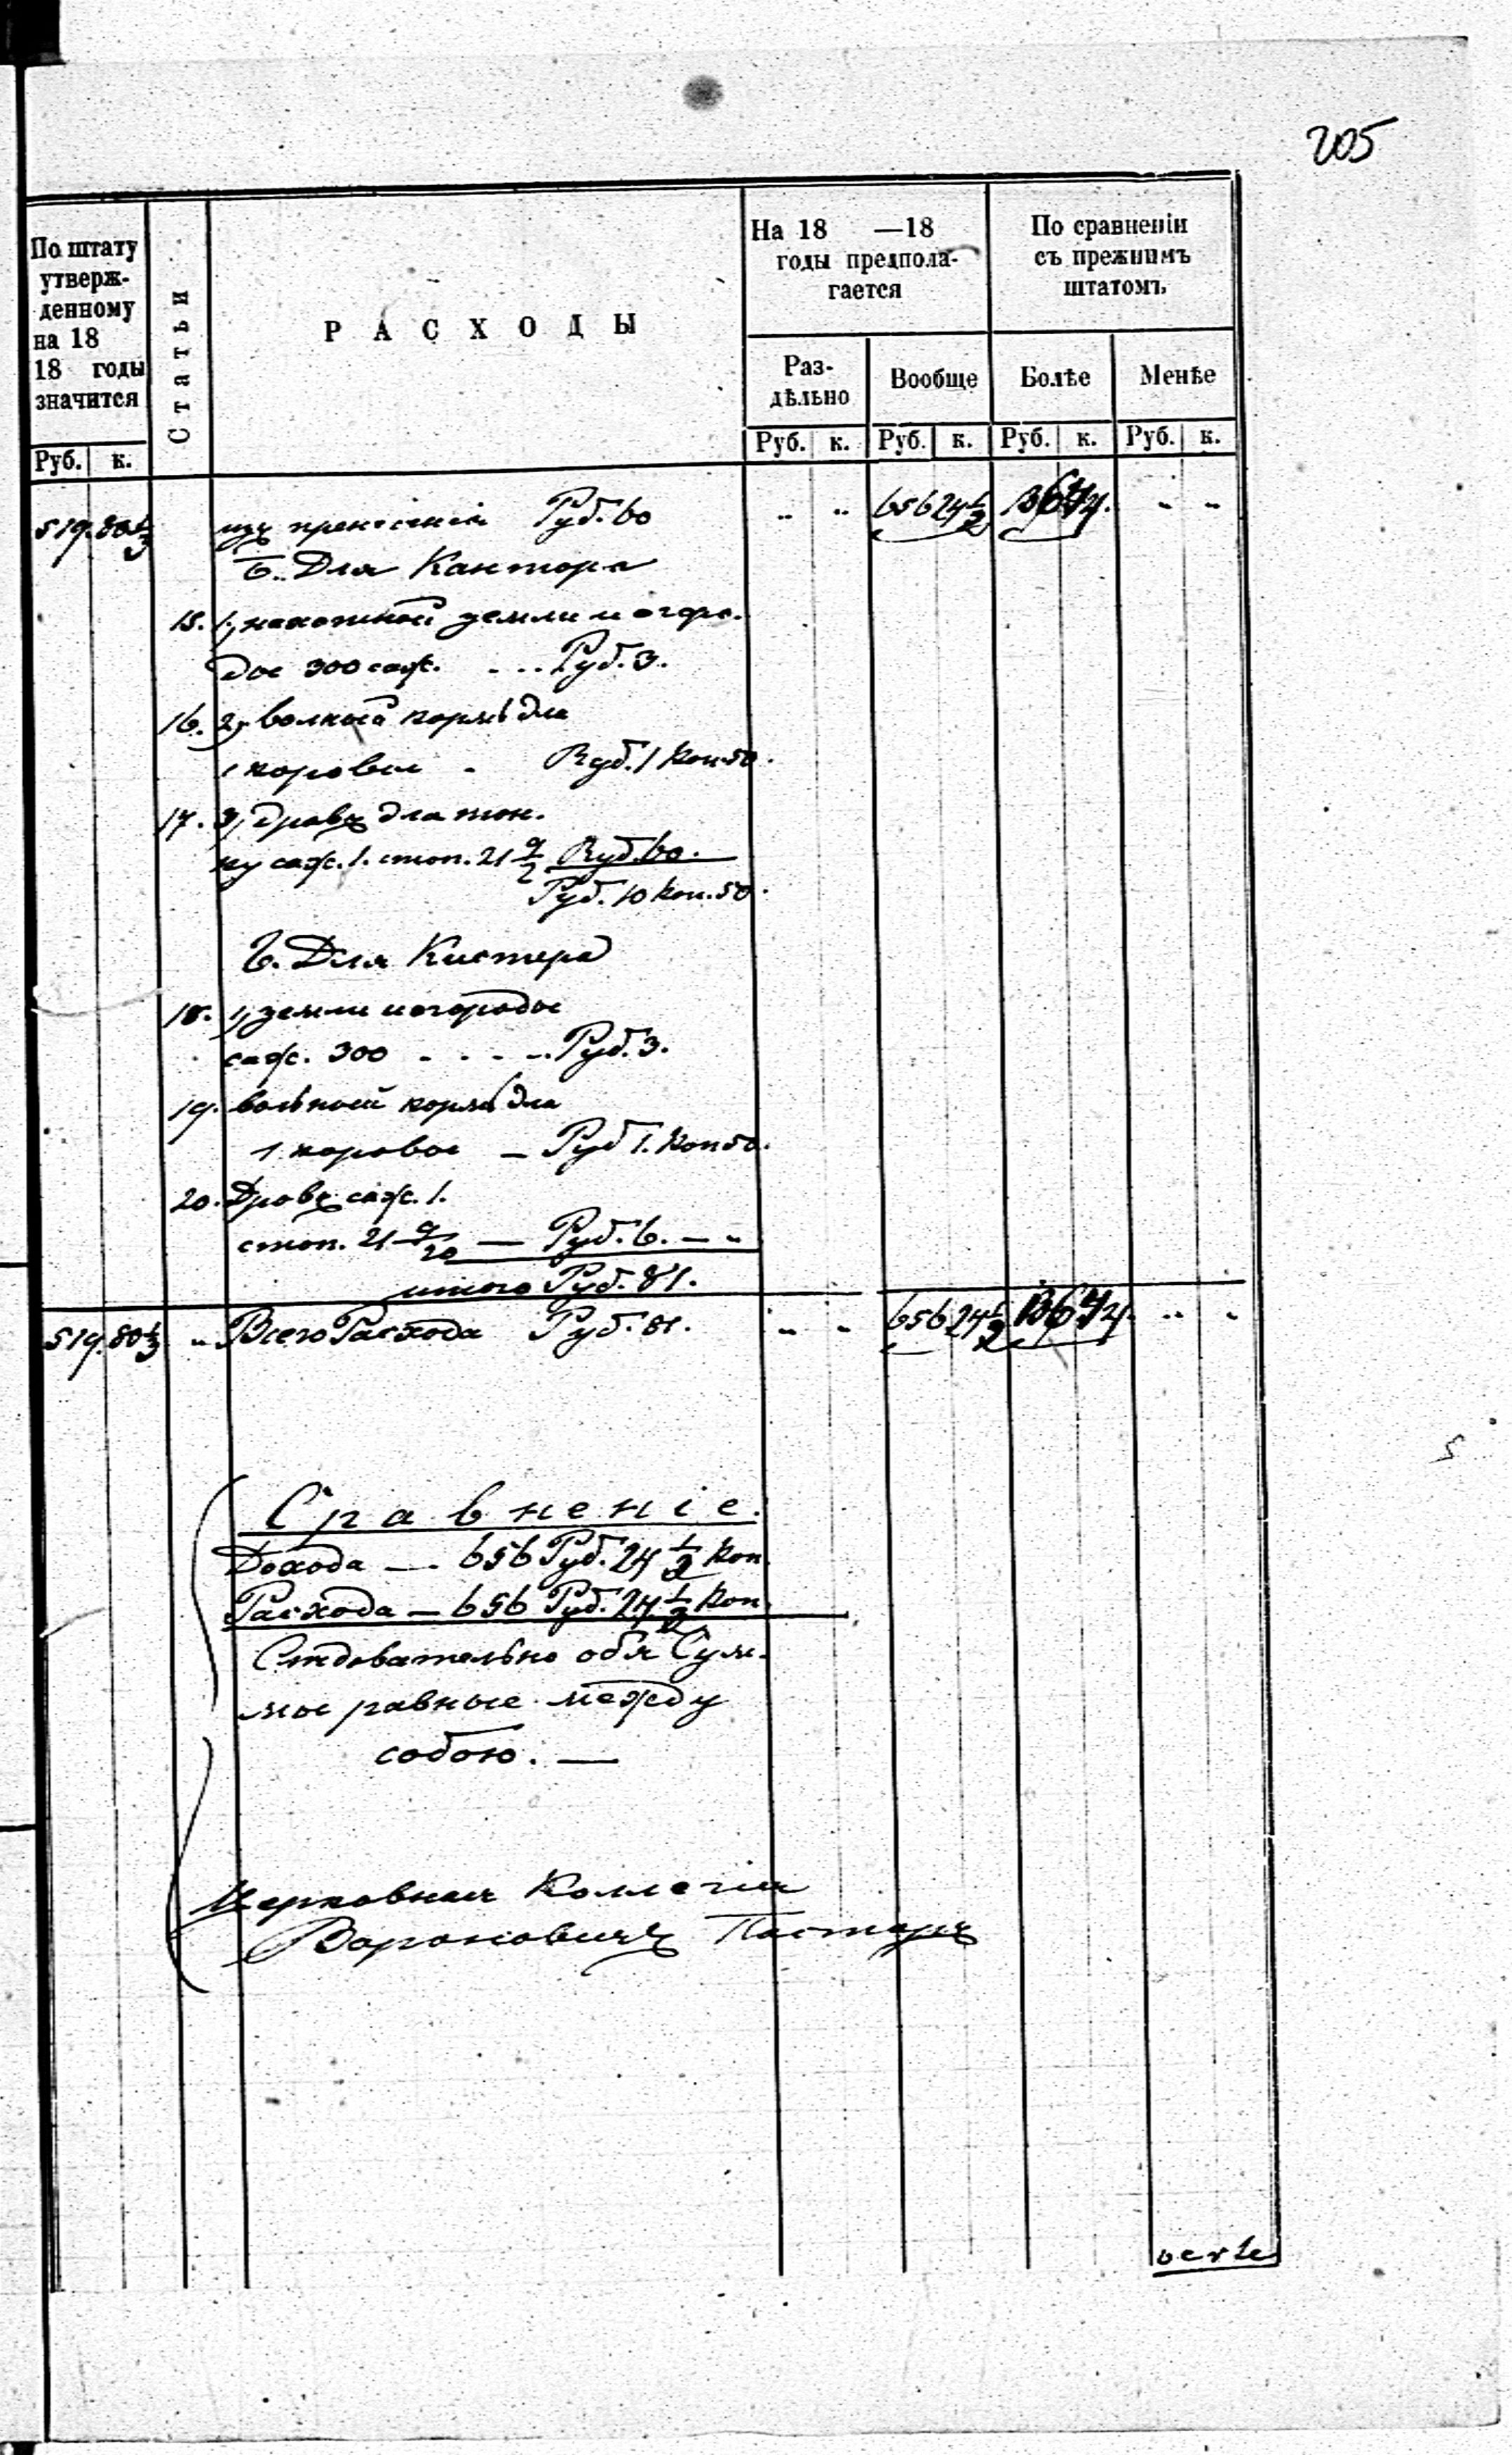 205
По штату
утверж-
денному
на 18
18 годы
значится
Руб. к.
Статьи
РАСХОДЫ
На 18 —18
годы предпола-
гается
Раз-
дѣльно
Руб. к.
Вообще
Руб. к.
По сравненіи
съ прежнимъ
штатомъ
Болѣе
Руб. к.
Менѣе
Руб. к.
519. 80 1/3 Руб. 60 " " 656 24 1/2 " "
Б. Для Кантора
15. 1, земли и огоро-
дос 300 саж. . . . Руб. 3.
16. 2, вольной кормъ для
1 коровы - Руб. 1 Коп. 50.
17. 3, Дровъ для топ-
ку саж. 1. стоп. 21 Руб. 60.
Руб. 10 Коп. 50.
В. Для Кистера
18. 1, земли и огородос
саж. 300 . . . . Руб. 3.
19. вольной кормъ для
1 коровы — Руб 1. Коп 50.
20. Дровъ саж. 1.
стоп. 21 9/20 — Руб. 6. — "
итого Руб. 81.
519. 80 1/3 " Всего Расхода Руб. 81. " " 656 24 1/2 " "
Сравненіе.
Дохода — 656 Руб. 24 1/2 Коп
Расхода — 656 Руб. 24 1/2 Коп.
Слѣдовательно обѣ Сум-
мы равные между
собою. —
Церковная Коллегія
Вороновичъ Пасторъ
verte